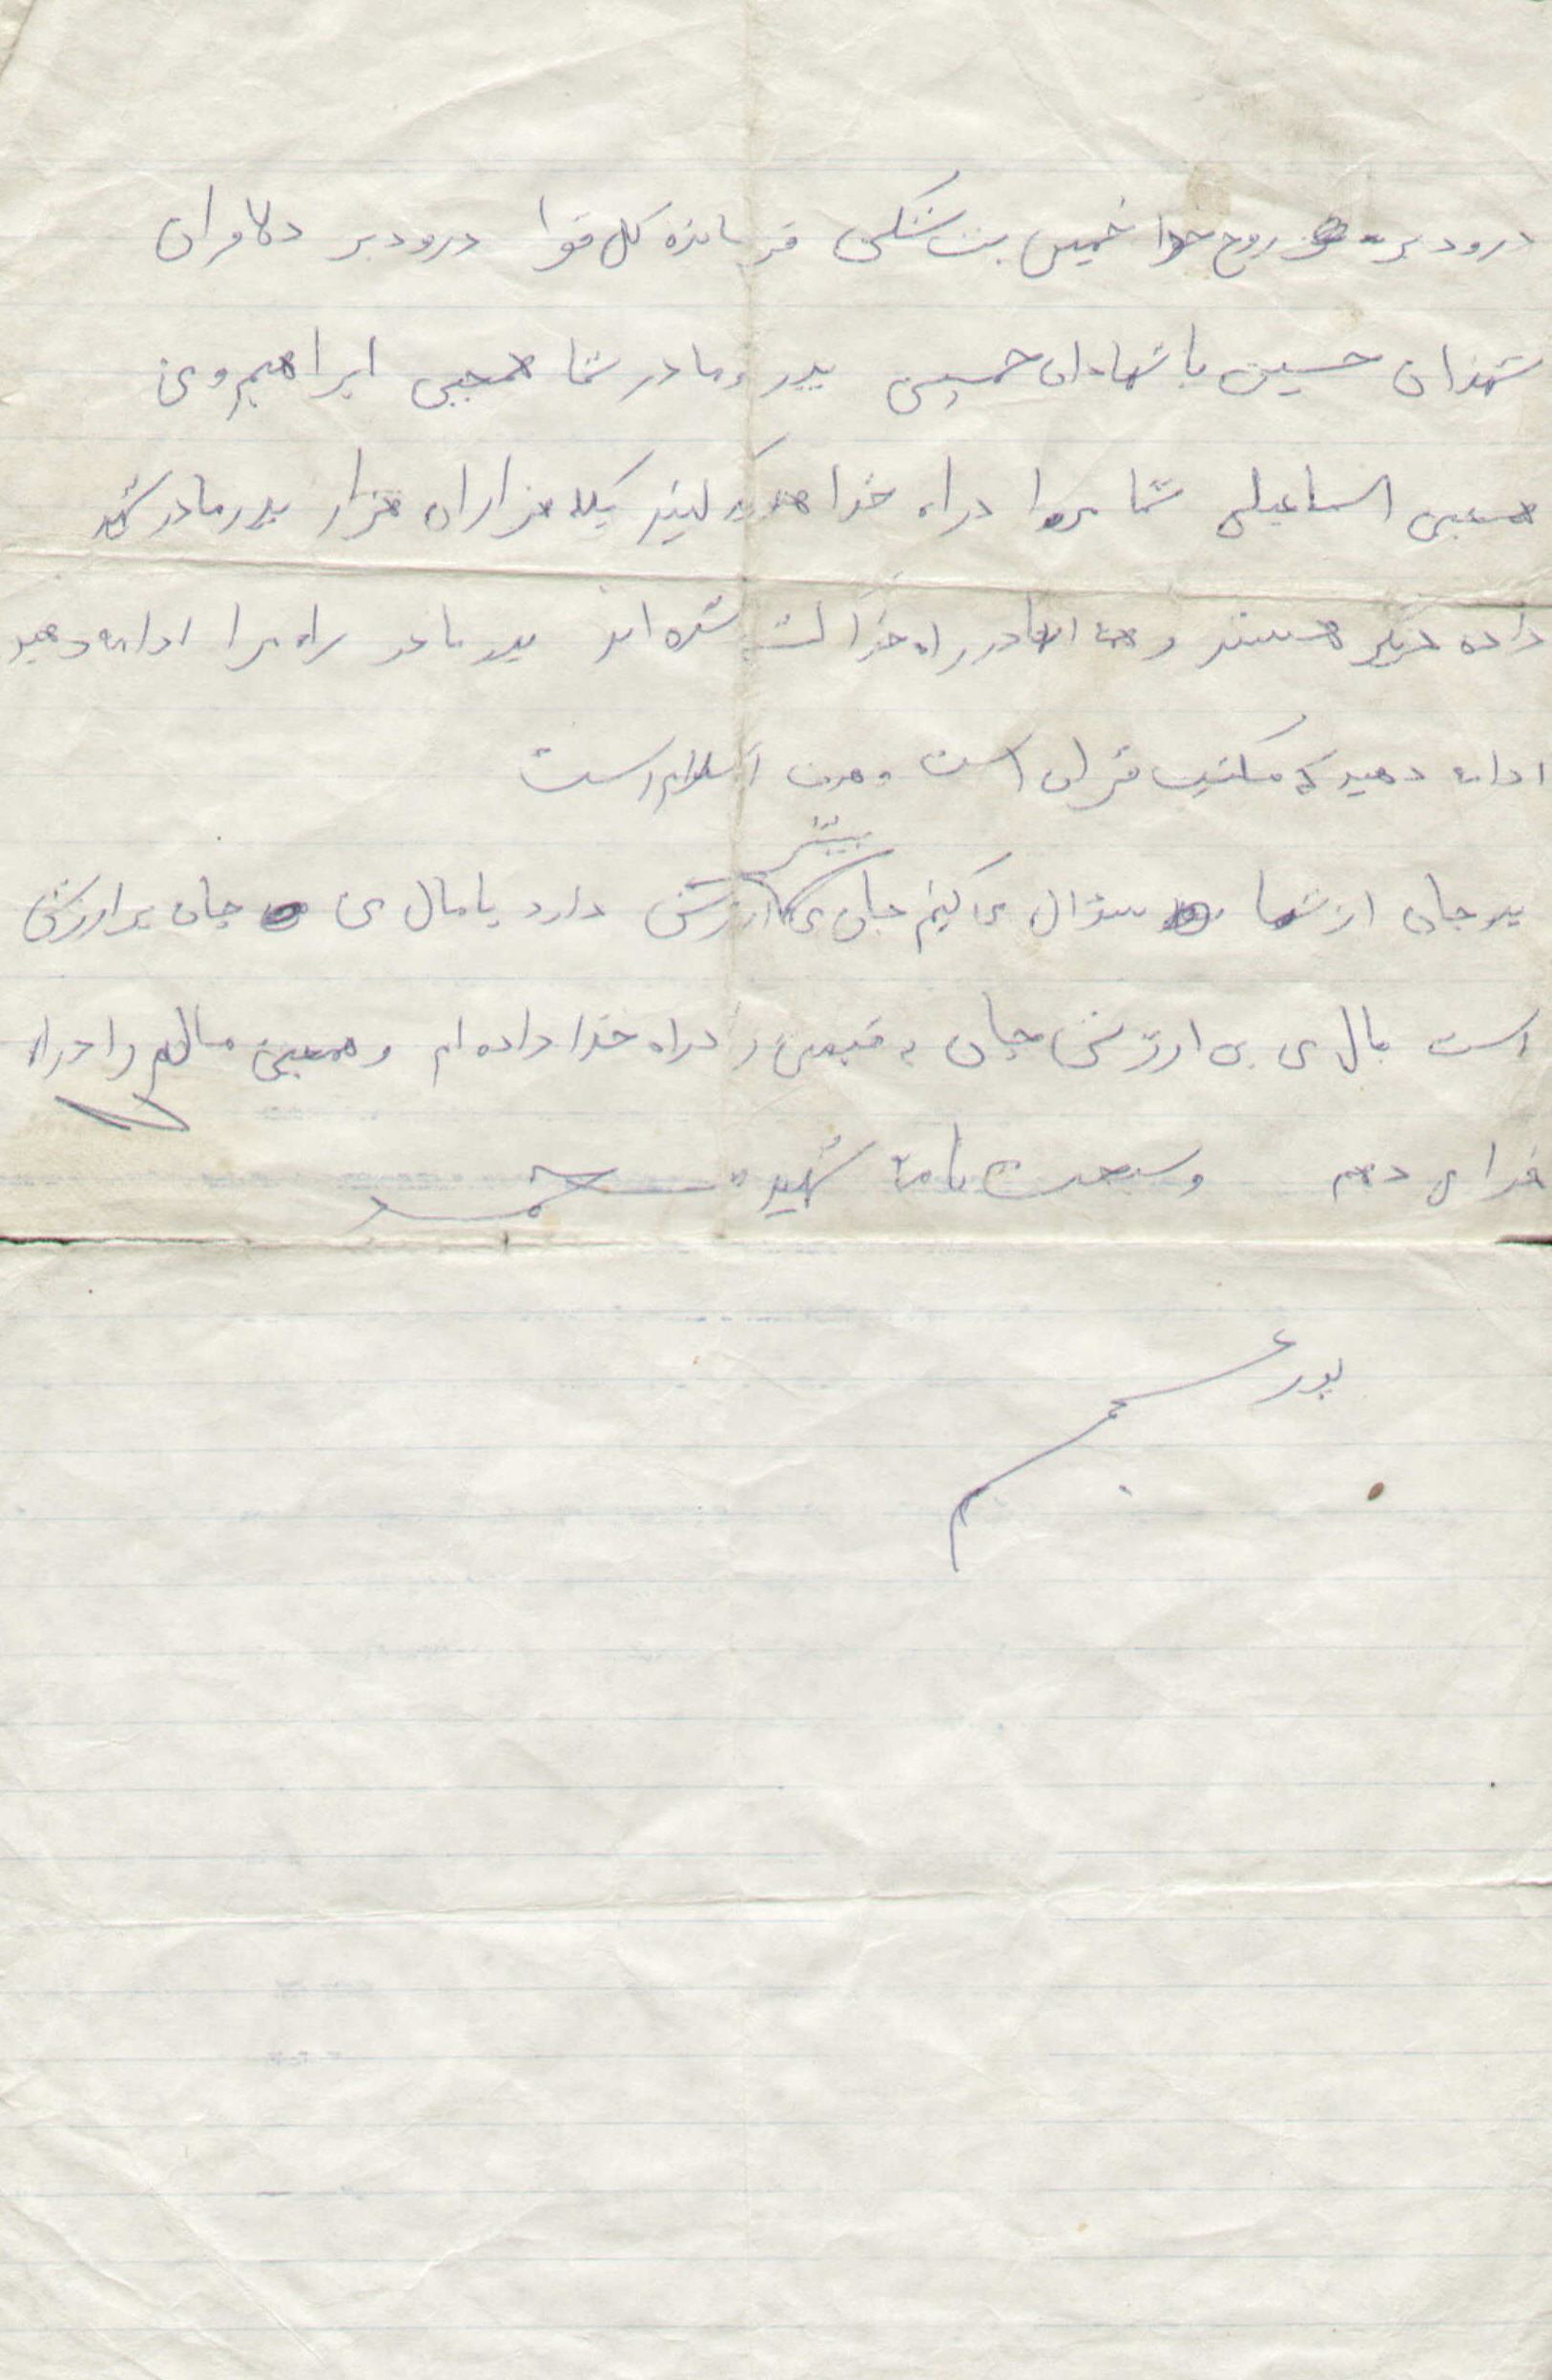 درود بر روح خدا خمینی بت شکن فرمانده کل قوا درود بر دلاوران
شهدان حسین با شهادان خمینی پدر و مادر شما همچی ابراهیم و من
همچی اسماعیلی شما مرا در راه خدا هزاران هزار پدر مادر شهد
داده دیگر هستند و همه انها در راه خدا کشته شده اند پدر مادر راه مرا ادامه دهید
ادامه دهید که مکتب قران است و هدف اسلام است
پدر جان از شما سؤال می کنم جان من بیشتر ارزش دارد یا مال من جان بر ارزش
است مال من بی ارزش جان به قیمتی را در راه خدا داده ام و همچنین مالم را در راه
خدا می دهم وسعت نامه شهید محمد
پور